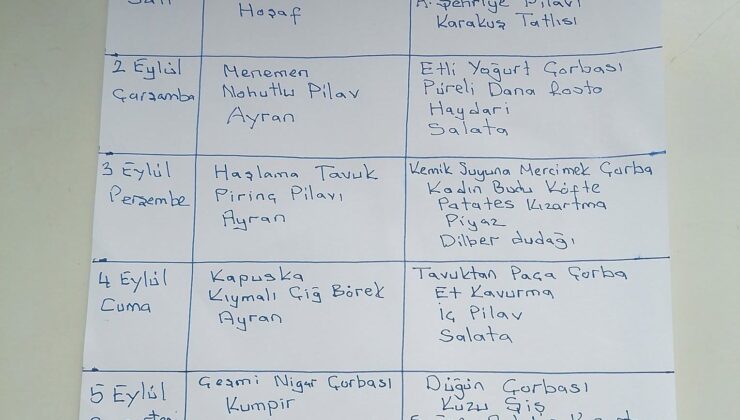 Salı
Hoşaf
A. Şehriye Pilavı
Karakuş Tatlısı
2 Eylül
Çarşamba
Menemen
Nohutlu Pilav
Ayran
Etli Yoğurt Çorbası
Püreli Dana Rosto
Haydari
Salata
3 Eylül
Perşembe
Haşlama Tavuk
Pirinç Pilavı
Ayran
Kemik Suyuna Mercimek Çorba
Kadın Budu Köfte
Patates Kızartma
Piyaz
Dilber dudağı
4 Eylül
Cuma
Kapuska
Kıymalı Çiğ Börek
Ayran
Tavuktan Paça Çorba
Et Kavurma
İç Pilav
Salata
5 Eylül
Çeşmi Nigar Çorbası
Kumpir
Düğün Çorbası
Kuzu Şiş